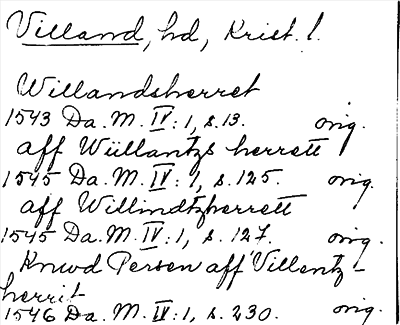 Villand, hd, Krist. l.
Willandsherret
1543 Da. M. IV: 1, s. 13. orig.
aff Wüllantzs herrett
1545 Da. M. IV: 1, s. 125. orig.
aff Willindtzherrett
1545 Da. M. IV: 1, s. 127. orig.
Knwd Persen aff Villentz-
herrit
1546 Da. M. IV: 1, s. 230. orig.